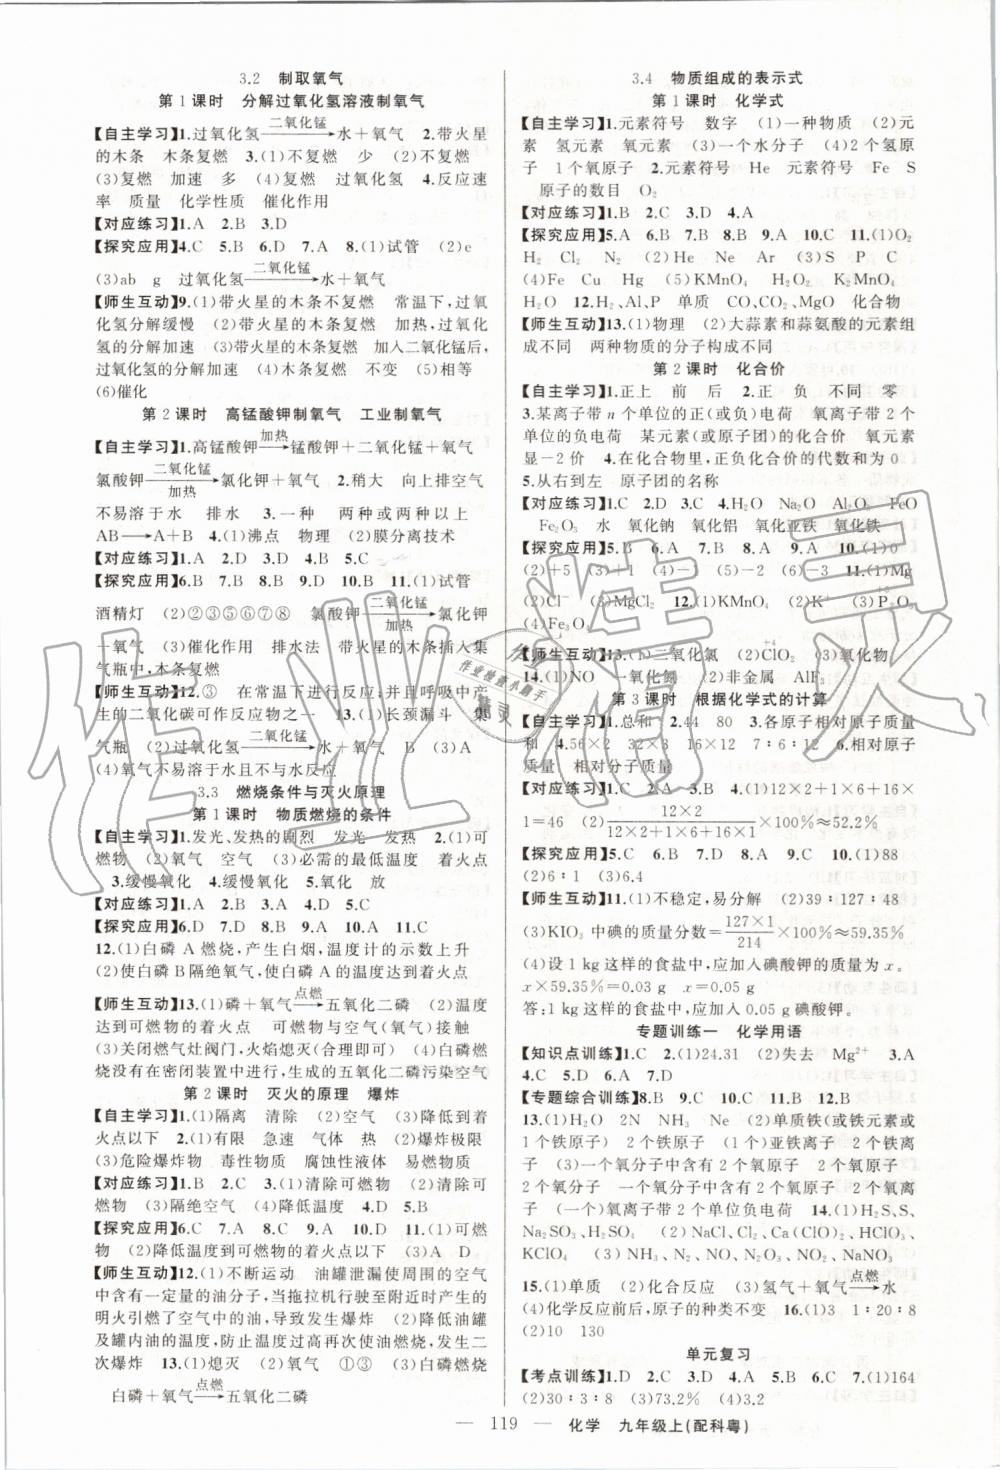 3.2 制取氧气
第1课时 分解过氧化氢溶液制氧气
【自主学习】1.过氧化氢——二氧化锰→水＋氧气 2.带火星
的木条 木条复燃 3.(1)不复燃 少 (2)不复燃
(3)复燃 加速 多 (4)复燃 过氧化氢 4.反应速
率 质量 化学性质 催化作用
【对应练习】1.A 2.B 3.D
【探究应用】4.C 5.B 6.D 7.A 8.(1)试管 (2)e
(3)ab g 过氧化氢——二氧化锰→水＋氧气
【师生互动】9.(1)带火星的木条不复燃 常温下,过氧
化氢分解缓慢 (2)带火星的木条复燃 加热,过氧化
氢的分解加速 (3)木条复燃 加入二氧化锰后,
过氧化氢的分解加速 (4)木条复燃 不变 (5)相等
(6)催化
第2课时 高锰酸钾制氧气 工业制氧气
【自主学习】1.高锰酸钾——加热→锰酸钾＋二氧化锰＋氧气
氯酸钾——二氧化锰/加热→氯化钾＋氧气 2.稍大 向上排空气
不易溶于水 排水 3.一种 两种或两种以上
AB→A＋B 4.(1)沸点 物理 (2)膜分离技术
【对应练习】1.C 2.D 3.D 4.B 5.C
【探究应用】6.B 7.B 8.D 9.B 10.B 11.(1)试管
酒精灯 (2)②③⑤⑥⑦⑧ 氯酸钾——二氧化锰/加热→氯化钾
＋氧气 (3)催化作用 排水法 带火星的木条插入集
气瓶中,木条复燃
【师生互动】12.③ 在常温下进行,并且呼吸中产
生的二氧化碳可作反应物之一 13.(1)长颈漏斗 集
气瓶 (2)过氧化氢——二氧化锰→水＋氧气 B (3)A
(4)氧气不易溶于水且不与水反应
3.3 燃烧条件与灭火原理
第1课时 物质燃烧的条件
【自主学习】1.发光、发热的剧烈 发光 发热 2.(1)可
燃物 (2)氧气 空气 (3)必需的最低温度 着火点
3.缓慢氧化 4.缓慢氧化 5.氧化 放
【对应练习】1.B 2.B 3.A 4.D 5.C
【探究应用】6.D 7.D 8.B 9.A 10.A 11.C
12.(1)白磷A燃烧,产生白烟,温度计的示数上升
(2)使白磷B隔绝氧气,使白磷A达到着火点
【师生互动】13.(1)磷＋氧气——点燃→五氧化二磷 (2)温度
达到可燃物的着火点 可燃物与空气(氧气)接触
(3)关闭燃气灶阀门,火焰熄灭(合理即可)
白磷在密闭装置中进行,生成的五氧化二磷污染空气
第2课时 灭火的原理 爆炸
【自主学习】1.(1)隔离 清除 (2)空气 (3)降低到着
火点以下 2.(1)有限 急速 气体 热 (2)爆炸极限
(3)危险爆炸物 毒性物质 腐蚀性液体 易燃物质
【对应练习】1.B 2.C 3.(1)清除可燃物 (2)清除可
燃物 (3)隔绝空气 (4)降低温度 4.D 5.B
【探究应用】6.C 7.A 8.C 9.A 10.C 11.(1)可燃
物 (2)降低温度到可燃物的着火点以下 (3)A D
【师生互动】12.(1)不断运动 油罐泄漏使周围的空气
中含有一定量的油分子,当拖拉机行驶至附近时产生的
明火引燃了空气中的油,导致发生爆炸 (2)降低油罐
及罐内油的温度,防止温度过高再次使油燃烧,发生二
次爆炸 13.(1)熄灭 (2)氧气 ①③ (3)白磷燃烧
白磷＋氧气——点燃→五氧化二磷
3.4 物质组成的表示式
第1课时 化学式
【自主学习】1.元素符号 数字 (1)一种物质 (2)元
素 氢元素 氧元素 (3)一个水分子 (4)2个氢原
子 1个氧原子 2.元素符号 He 元素符号 Fe S
原子的数目 O₂
【对应练习】1.B 2.C 3.D 4.A
【探究应用】5.A 6.B 7.B 8.B 9.A 10.C 11.(1)O₂
H₂ Cl₂ N₂ (2)He Ne Ar (3)S P C
(4)Fe Cu Hg (5)KMnO₄ H₂O₂ K₂MnO₄
H₂O 12.H₂、Al、P 单质 CO、CO₂、MgO 化合物
【师生互动】13.(1)物理 (2)大蒜素和蒜氨酸的元素组
成不同 两种物质的分子构成不同
第2课时 化合价
【自主学习】1.正上 前 后 2.正 负 不同 零
3.某离子带n个单位的正(或负)电荷 氧离子带2个
单位的负电荷 某元素(或原子团)的化合价 氧元素
显－2价 4.在化合物里,正负化合价的代数和为0
5.从右到左 原子团的名称
【对应练习】1.C 2.D 3.C 4.H₂O Na₂O Al₂O₃ FeO
Fe₂O₃ 水 氧化钠 氧化铝 氧化亚铁 氧化铁
【探究应用】5.B 6.A 7.B 8.A 9.A 10.(1)0
(2)＋5 (3)＋5 (4)－1 (5)－3 (6)－2 11.(1)Mg
(2)Cl⁻ (3)MgCl₂ 12.(1)KMnO₄ (2)K⁺ (3)P₂O₅
(4)Fe₃O₄
【师生互动】13.(1)二氧化氯 (2)ClO₂ (3)氧化物
14.(1)NO 一氧化氮 (2)非金属 AlF₃
第3课时 根据化学式的计算
【自主学习】1.总和 2.44 80 3.各原子相对原子质量
和 4.56×2 32×3 16×12 7∶6∶12 6.相对原子
质量 相对分子质量
【对应练习】1.C 2.B 3.B 4.(1)12×2＋1×6＋16×
1＝46 (2)12×2/(12×2＋1×6＋16×1)×100％≈52.2％
【探究应用】5.C 6.B 7.D 8.A 9.A 10.(1)88
(2)6∶1 (3)6.4
【师生互动】11.(1)不稳定,易分解 (2)39∶127∶48
(3)KIO₃中碘的质量分数＝127×1/214×100％≈59.35％
(4)设1 kg这样的食盐中,应加入碘酸钾的质量为x。
x×59.35％＝0.03 g x≈0.05 g
答:1 kg这样的食盐中,应加入0.05 g碘酸钾。
专题训练一 化学用语
【知识点训练】1.C 2.(1)24.31 (2)失去 Mg²⁺ 3.A
4.C 5.D 6.A 7.D
【专题综合训练】8.B 9.C 10.D 11.B 12.B
13.(1)H₂O 2N NH₃ Ne (2)单质铁(或铁元素或
1个铁原子) 2个铁原子 (1个)亚铁离子 2个铁离
子 (3)一个氧分子中含有2个氧原子 2个氧原子
2个氧分子 一个氧分子中含有2个氧原子 2个氧离
子 (一个)氧离子带2个单位负电荷 14.(1)H₂S、S、
Na₂SO₃、H₂SO₄ (2)NaCl、Cl₂、Ca(ClO)₂、HClO₃、
KClO₄ (3)NH₃、N₂、NO、NO₂、HNO₃
15.(1)单质 (2)化合反应 (3)氢气＋氧气——点燃→水
(4)化学反应前后,原子的种类不变 16.(1)3 1∶20∶8
(2)10 130
单元复习
【考点训练】1.A 2.D 3.C 4.D 5.B 6.C 7.(1)164
(2)30∶3∶8 (3)73.2％ (4)3.2 8.D 9.D
— 119 — 化学 九年级上(配科粤)
作业精灵